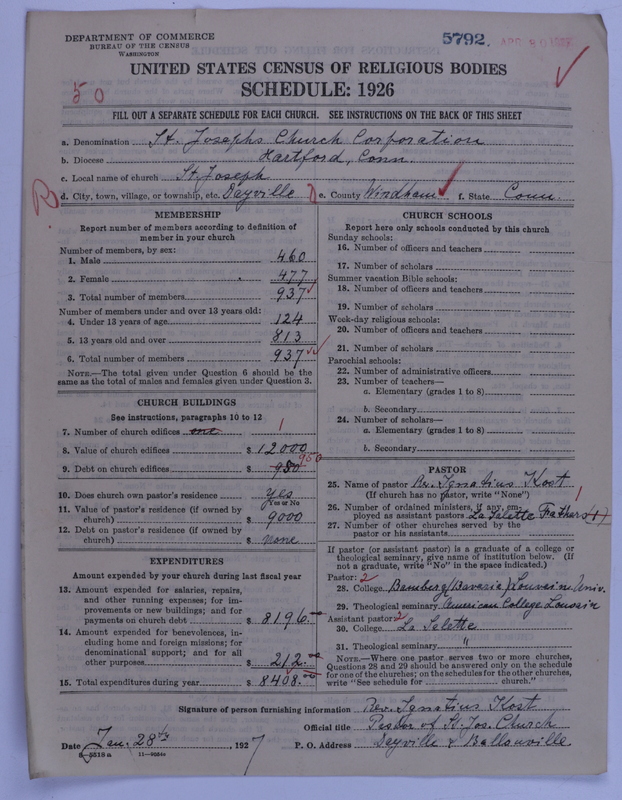 DEPARTMENT OF COMMERCE
BUREAU OF THE CENSUS
WASHINGTON
5792.
UNITED STATES CENSUS OF RELIGIOUS BODIES
SCHEDULE: 1926
50
FILL OUT A SEPARATE SCHEDULE FOR EACH CHURCH. SEE INSTRUCTIONS ON THE BACK OF THIS SHEET
a. Denomination St. Josephs Church Corporation
b. Diocese Hartford, Conn.
c. Local name of church St. Joseph
d. City, town, village, or township, etc. Dayville e. County Windham f. State Conn.
MEMBERSHIP
Report number of members according to definition of member in your church
Number of members, by sex:
1. Male 460
2. Female 477
3. Total number of members 937
Number of members under and over 13 years old:
4. Under 13 years of age 124
5. 13 years old and over 813
6. Total number of members 937
NOTE.—The total given under Question 6 should be
same as the total of males and females given under Question 3.
CHURCH BUILDINGS
See instructions, paragraphs 10 to 12
7. Number of church edifices one 1
8. Value of church edifices $ 12000
9. Debt on church edifices $ 950 950
10. Does church own pastor's residence Yes
Yes or No
11. Value of pastor's residence (if owned by
church) $ 9000
12. Debt on pastor's residence (if owned by
church) $ None
EXPENDITURES
Amount expended by your church during last fiscal year
13. Amount expended for salaries, repairs,
and other running expenses; for im-
provements or new buildings; and for
payments on church debt $ 8196.00
14. Amount expended for benevolences, in-
cluding home and foreign missions; for
denominational support; and for all
other purposes $ 212.00
15. Total expenditures during year $ 8408.00
CHURCH SCHOOLS
Report here only schools conducted by this church
Sunday schools:
16. Number of officers and teachers
17. Number of scholars
Summer vacation Bible schools:
18. Number of officers and teachers
19. Number of scholars
Week-day religious schools:
20. Number of officers and teachers
21. Number of scholars
Parochial schools:
22. Number of administrative officers
23. Number of teachers—
a. Elementary (grades 1 to 8)
b. Secondary
24. Number of scholars—
a. Elementary (grades 1 to 8)
b. Secondary
PASTOR
25. Name of pastor Rev. Ignatius Kost
(If church has no pastor, write "None")
26. Number of ordained ministers, if any, em-
ployed as assistant pastors La Salette Fathers (1) 1
27. Number of other churches served by the
pastor or his assistants
If pastor (or assistant pastor) is a graduate of a college or
theological seminary, give name of institution below. (If
not a graduate, write "No" in the space indicated.)
Pastor: 2
28. College Bamberg (Bavaria) Louvain Univ.
29. Theological seminary American College Louvain
Assistant pastor: 2
30. College La Salette
31. Theological seminary "
NOTE.—Where one pastor serves two or more churches,
Questions 28 and 29 should be answered only on the schedule
for one of the churches; on the schedules for the other churches,
write "See schedule for church."
Signature of person furnishing information Rev. Ignatius Kost
Official title Pastor of St. Jos. Church
Date Jan. 28th 1927 P. O. Address Dayville & Ballouville.
8-5518a 11-9084